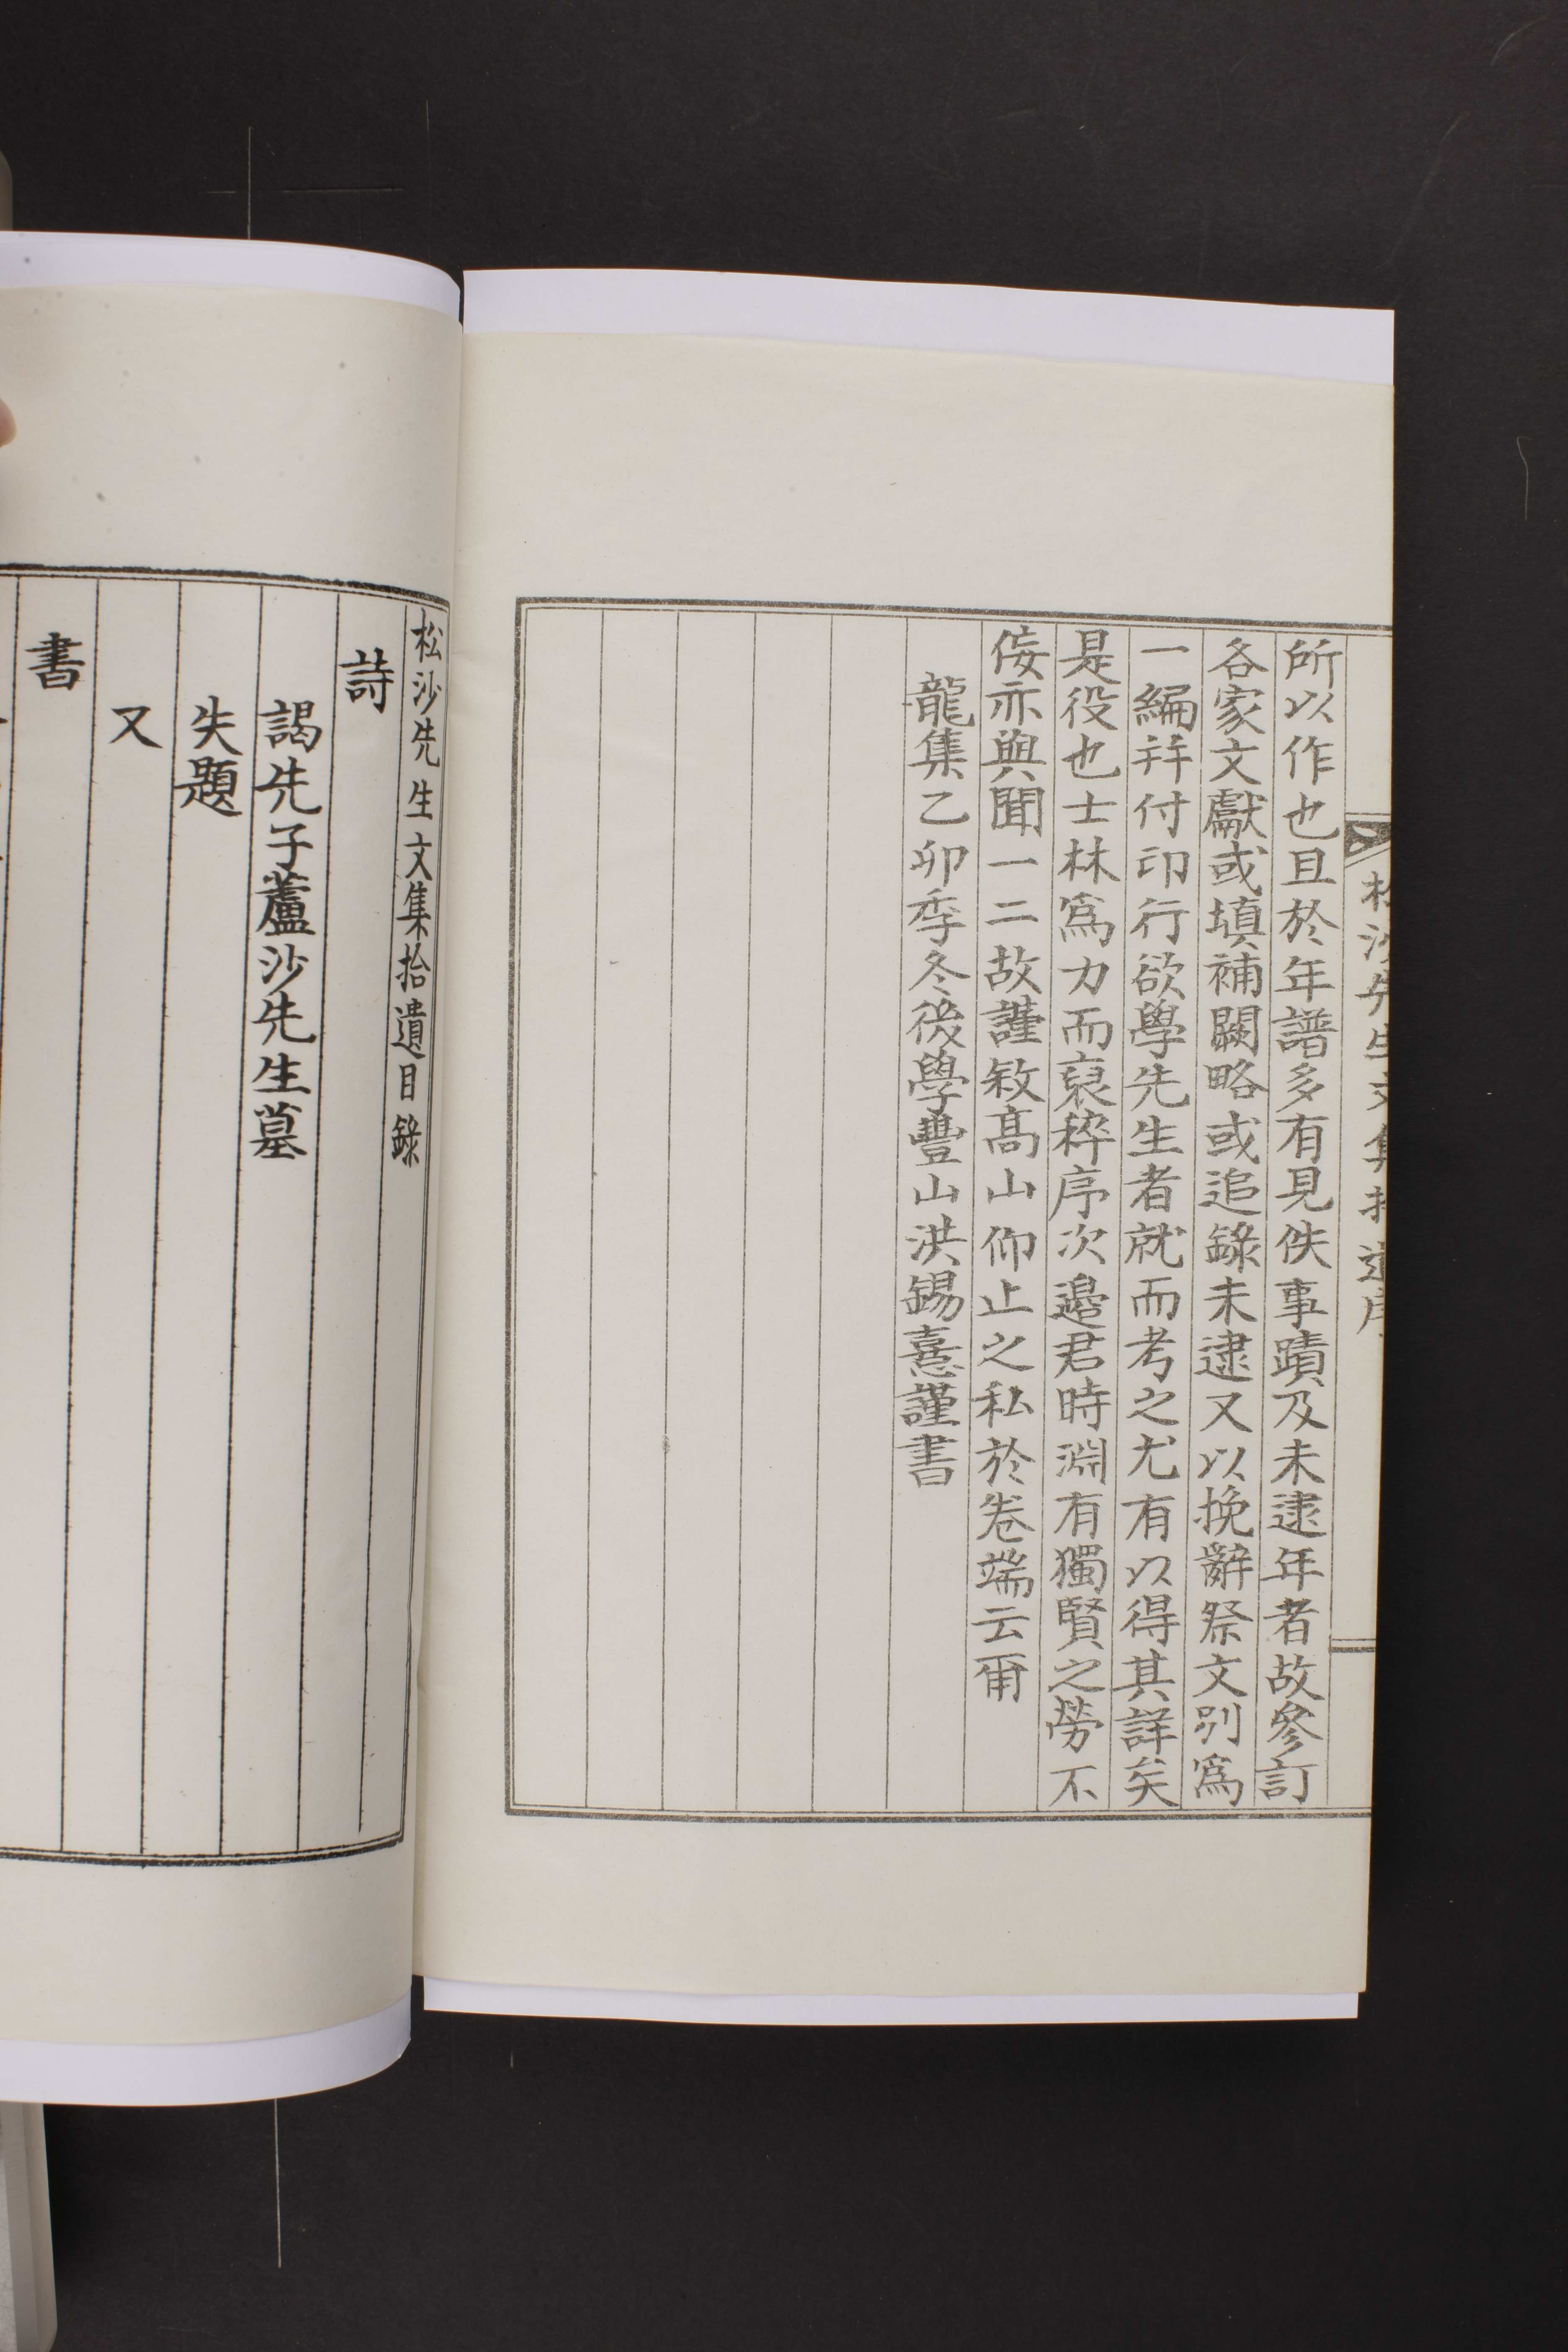 松沙先生文集拾遺序
所以作也且於年譜多有見佚事蹟及未逮年者故參訂
各家文獻或填補闕略或追錄未逮又以挽辭祭文別爲
一編幷付印行欲學先生者就而考之尤有以得其詳矣
是役也士林爲力而裒稡序次邉君時淵有獨賢之勞不
侫亦與聞一二故謹敍高山仰止之私於卷端云爾
龍集乙卯季冬後學豊山洪錫憙謹書
松沙先生文集拾遺目錄
詩
謁先子蘆沙先生墓
失題
又
書